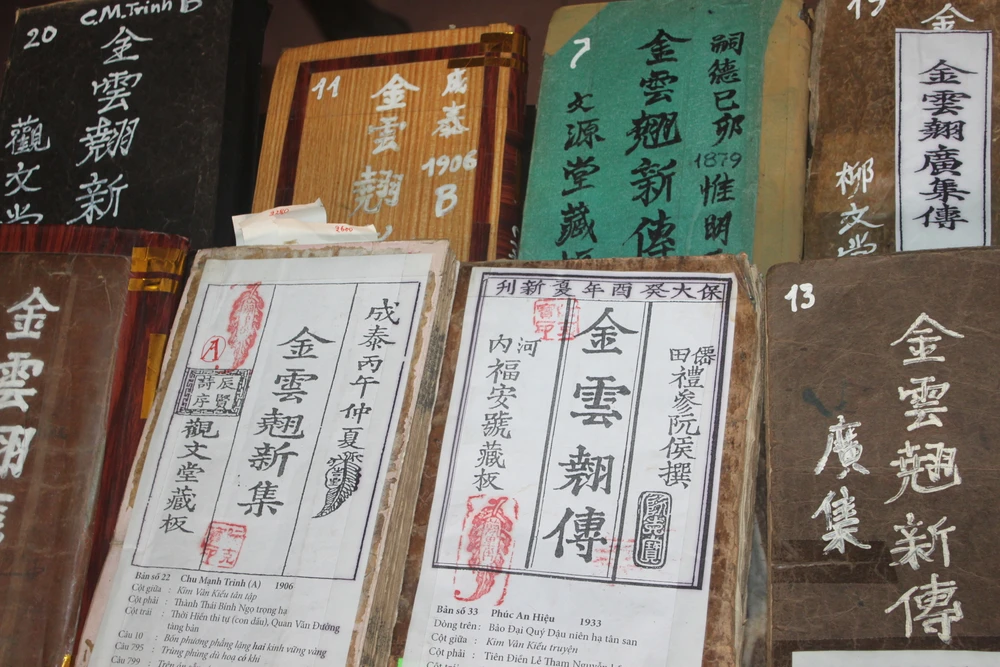 20
C.M.Trinh B
金雲翹新
觀文堂
11
成泰
1906
B
金雲翹
7
嗣德己卯
1879
惟明
金雲翹新傳
文源堂藏板
金
金雲翹廣集傳
柳文堂
金雲翹
2250
2600
成泰丙午仲夏
金雲翹新集
A
辰賢
詩序
觀文堂藏板
Bản số 22 Chu Mạnh Trinh (A) 1906
Cột giữa : Kim Vân Kiều tân tập
Cột phải : Thành Thái Bính Ngọ trọng hạ
Cột trái : Thời Hiền thi tự (con dấu), Quan Văn Đường
tàng bản
Câu 10 : Bốn phương phẳng lặng hai kinh vững vàng
Câu 795 : Trùng phùng dù hoạ có khi
Câu 799
保大癸酉年夏新刊
僊田禮參阮侯撰
金雲翹傳
河內福安號藏板
Bản số 33 Phúc An Hiệu 1933
Dòng trên : Bảo Đại Quý Dậu niên hạ tân san
Cột giữa : Kim Vân Kiều truyện
Cột phải : Tiên Điền Lễ Tham Nguyễn
13
金雲翹新傳
廣集